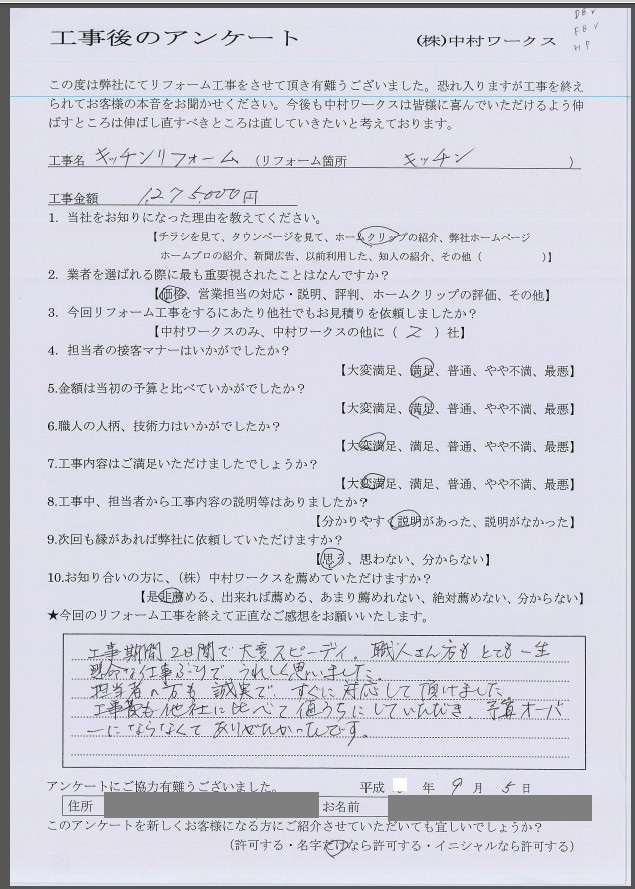 DB✓
FB✓
HP
工事後のアンケート (株)中村ワークス
この度は弊社にてリフォーム工事をさせて頂き有難うございました。恐れ入りますが工事を終え
られてお客様の本音をお聞かせください。今後も中村ワークスは皆様に喜んでいただけるよう伸
ばすところは伸ばし直すべきところは直していきたいと考えております。
工事名 キッチンリフォーム (リフォーム箇所 キッチン )
工事金額 1,275,000円
1. 当社をお知りになった理由を教えてください。
【チラシを見て、タウンページを見て、ホームクリップの紹介、弊社ホームページ
ホームプロの紹介、新聞広告、以前利用した、知人の紹介、その他( )】
2. 業者を選ばれる際に最も重要視されたことはなんですか?
【価格、営業担当の対応・説明、評判、ホームクリップの評価、その他】
3. 今回リフォーム工事をするにあたり他社でもお見積りを依頼しましたか?
【中村ワークスのみ、中村ワークスの他に( 2 )社】
4. 担当者の接客マナーはいかがでしたか?
【大変満足、満足、普通、やや不満、最悪】
5.金額は当初の予算と比べていかがでしたか?
【大変満足、満足、普通、やや不満、最悪】
6.職人の人柄、技術力はいかがでしたか?
【大変満足、満足、普通、やや不満、最悪】
7.工事内容はご満足いただけましたでしょうか?
【大変満足、満足、普通、やや不満、最悪】
8.工事中、担当者から工事内容の説明等はありましたか?
【分かりやすく説明があった、説明がなかった】
9.次回も縁があれば弊社に依頼していただけますか?
【思う、思わない、分からない】
10.お知り合いの方に、(株)中村ワークスを薦めていただけますか?
【是非薦める、出来れば薦める、あまり薦めれない、絶対薦めない、分からない】
★今回のリフォーム工事を終えて正直なご感想をお願いいたします。
工事期間 2日間で大変スピーディ。職人さん方もとても一生
懸命な仕事ぶりで、うれしく思いました。
担当者の方も誠実で、すぐに対応して頂けました
工事費も他社に比べて値うちにしていただき、予算オーバ
ーにならなくてありがたかったです。
アンケートにご協力有難うございました。 平成 年 9 月 5 日
住所 お名前
このアンケートを新しくお客様になる方にご紹介させていただいても宜しいでしょうか?
(許可する・名字だけなら許可する・イニシャルなら許可する)